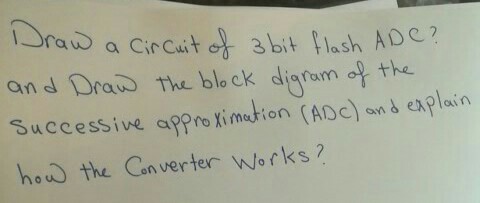 Draw a circuit of 3 bit flash ADC?
and Draw the block digram of the
Successive approximation (ADC) and explain
how the Converter works?